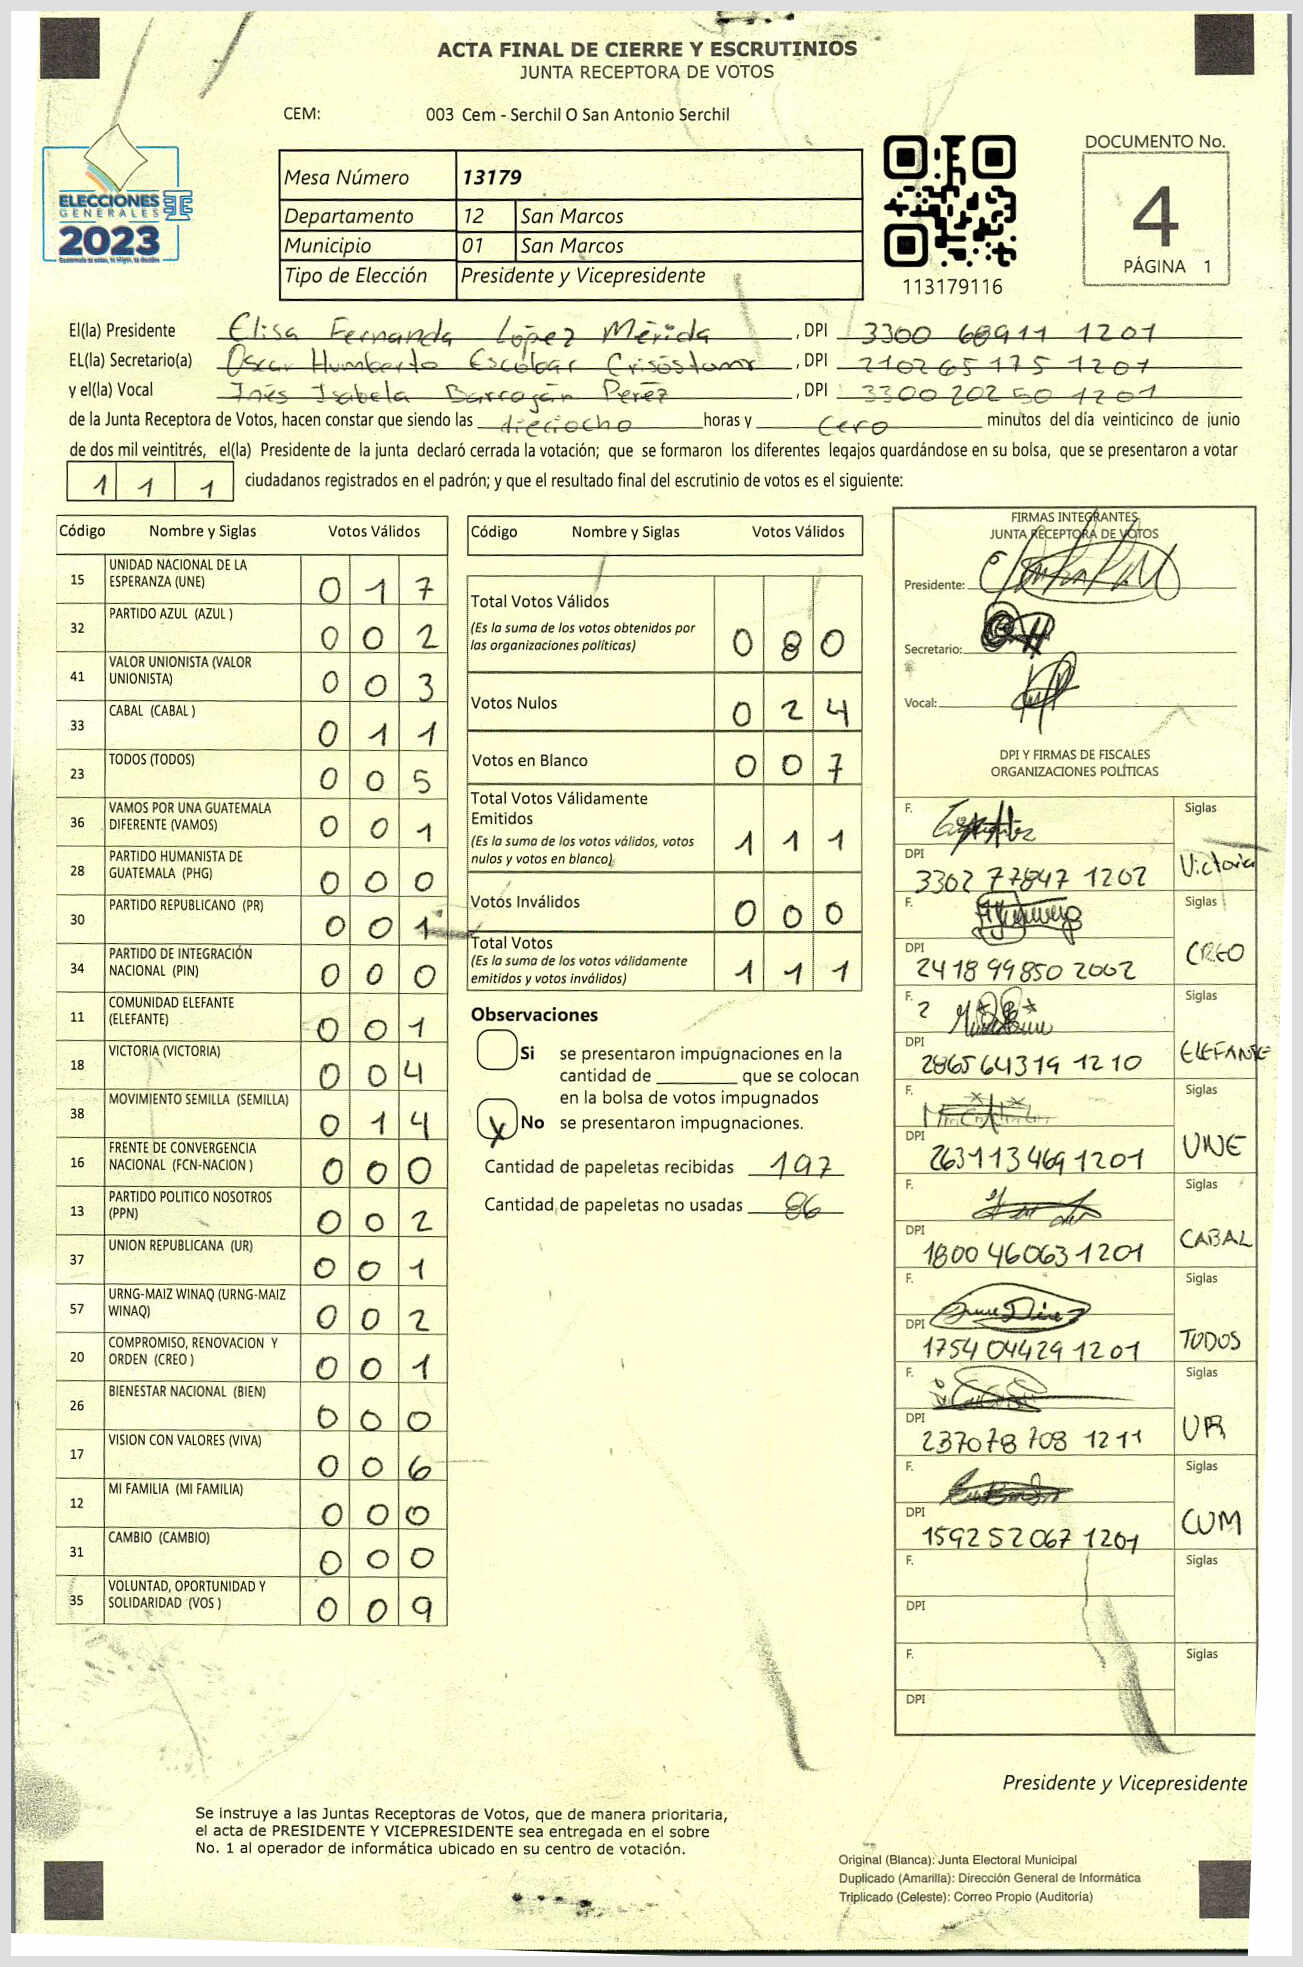 ACTA FINAL DE CIERRE Y ESCRUTINIOS
JUNTA RECEPTORA DE VOTOS
CEM: 003 Cem - Serchil O San Antonio Serchil
ELECCIONES
GENERALES
2023
Mesa Número 13179
Departamento 12 San Marcos
Municipio 01 San Marcos
Tipo de Elección Presidente y Vicepresidente
113179116
DOCUMENTO No.
4
PÁGINA 1
El(la) Presidente Elisa Fernanda López Mérida , DPI 3300 68911 1201
EL(la) Secretario(a) Oscar Humberto Escobar Crisóstomo , DPI 2102 65175 1201
y el(la) Vocal Inés Isabela Barrogán Peréz , DPI 3300 202 50 1201
de la Junta Receptora de Votos, hacen constar que siendo las dieciocho horas y Cero minutos del día veinticinco de junio
de dos mil veintitrés, el(la) Presidente de la junta declaró cerrada la votación; que se formaron los diferentes legajos quardándose en su bolsa, que se presentaron a votar
1 1 1 ciudadanos registrados en el padrón; y que el resultado final del escrutinio de votos es el siguiente:
Código Nombre y Siglas Votos Válidos
15 UNIDAD NACIONAL DE LA ESPERANZA (UNE) 0 1 7
32 PARTIDO AZUL (AZUL ) 0 0 2
41 VALOR UNIONISTA (VALOR UNIONISTA) 0 0 3
33 CABAL (CABAL ) 0 1 1
23 TODOS (TODOS) 0 0 5
36 VAMOS POR UNA GUATEMALA DIFERENTE (VAMOS) 0 0 1
28 PARTIDO HUMANISTA DE GUATEMALA (PHG) 0 0 0
30 PARTIDO REPUBLICANO (PR) 0 0 1
34 PARTIDO DE INTEGRACIÓN NACIONAL (PIN) 0 0 0
11 COMUNIDAD ELEFANTE (ELEFANTE) 0 0 1
18 VICTORIA (VICTORIA) 0 0 4
38 MOVIMIENTO SEMILLA (SEMILLA) 0 1 4
16 FRENTE DE CONVERGENCIA NACIONAL (FCN-NACION ) 0 0 0
13 PARTIDO POLITICO NOSOTROS (PPN) 0 0 2
37 UNION REPUBLICANA (UR) 0 0 1
57 URNG-MAIZ WINAQ (URNG-MAIZ WINAQ) 0 0 2
20 COMPROMISO, RENOVACION Y ORDEN (CREO ) 0 0 1
26 BIENESTAR NACIONAL (BIEN) 0 0 0
17 VISION CON VALORES (VIVA) 0 0 6
12 MI FAMILIA (MI FAMILIA) 0 0 0
31 CAMBIO (CAMBIO) 0 0 0
35 VOLUNTAD, OPORTUNIDAD Y SOLIDARIDAD (VOS ) 0 0 9
Código Nombre y Siglas Votos Válidos
Total Votos Válidos
(Es la suma de los votos obtenidos por
las organizaciones políticas) 0 8 0
Votos Nulos 0 2 4
Votos en Blanco 0 0 7
Total Votos Válidamente
Emitidos
(Es la suma de los votos válidos, votos
nulos y votos en blanco) 1 1 1
Votos Inválidos 0 0 0
Total Votos
(Es la suma de los votos válidamente
emitidos y votos inválidos) 1 1 1
Observaciones
Si se presentaron impugnaciones en la
cantidad de ________ que se colocan
en la bolsa de votos impugnados
X No se presentaron impugnaciones.
Cantidad de papeletas recibidas 197
Cantidad de papeletas no usadas 86
FIRMAS INTEGRANTES
JUNTA RECEPTORA DE VOTOS
Presidente:
Secretario:
Vocal:
DPI Y FIRMAS DE FISCALES
ORGANIZACIONES POLÍTICAS
F. Siglas
DPI 3302 77847 1202 Victoria
F. Siglas
DPI 2418 99850 2002 CREO
F. Siglas
DPI 2865 64319 1210 ELEFANTE
F. Siglas
DPI 2631 13469 1201 UNE
F. Siglas
DPI 1800 46063 1201 CABAL
F. Siglas
DPI 1754 04429 1201 TODOS
F. Siglas
DPI 2370 78 708 1211 UR
F. Siglas
DPI 1592 52067 1201 CUM
F. Siglas
DPI
F. Siglas
DPI
Presidente y Vicepresidente
Se instruye a las Juntas Receptoras de Votos, que de manera prioritaria,
el acta de PRESIDENTE Y VICEPRESIDENTE sea entregada en el sobre
No. 1 al operador de informática ubicado en su centro de votación.
Original (Blanca): Junta Electoral Municipal
Duplicado (Amarilla): Dirección General de Informática
Triplicado (Celeste): Correo Propio (Auditoría)